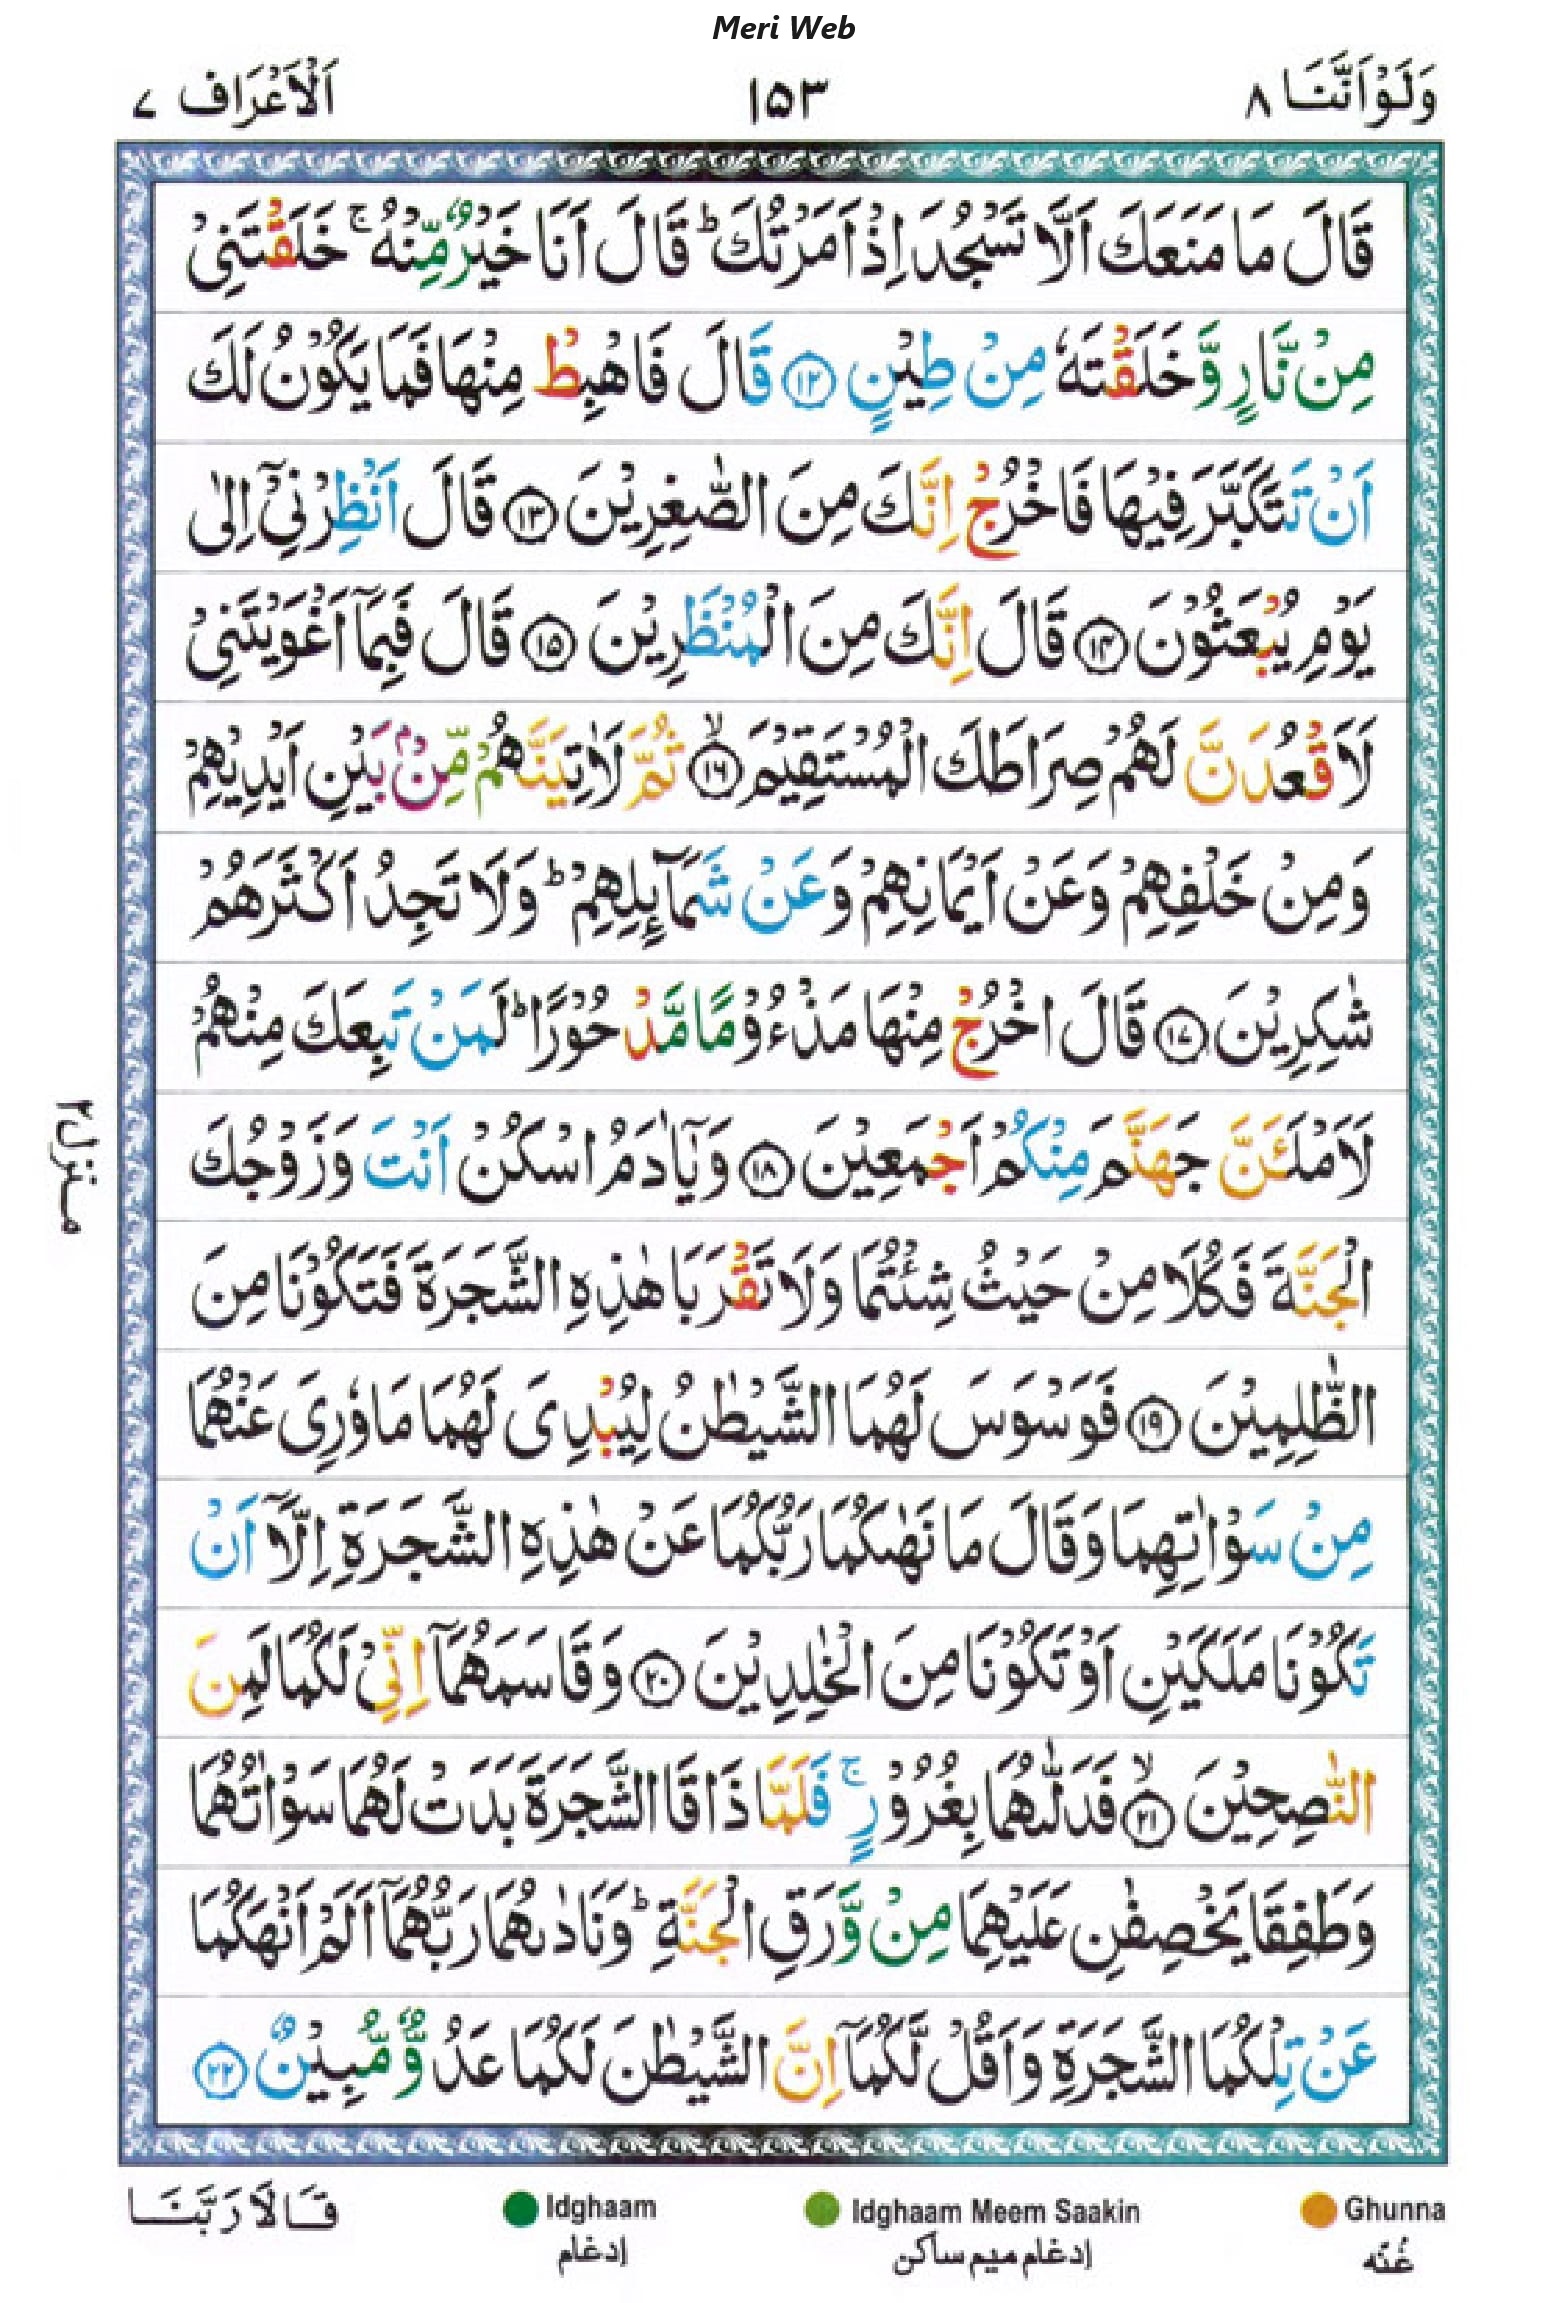 Meri Web
وَلَوْ اَنَّنَا ٨
١٥٣
اَلْاَعْرَاف ٧
قَالَ مَا مَنَعَكَ اَلَّا تَسْجُدَ اِذْ اَمَرْتُكَ ؕ قَالَ اَنَا خَيْرٌ مِّنْهُ ۚ خَلَقْتَنِىْ
مِنْ نَّارٍ وَّ خَلَقْتَهٗ مِنْ طِيْنٍ ﴿١٢﴾ قَالَ فَاهْبِطْ مِنْهَا فَمَا يَكُوْنُ لَكَ
اَنْ تَتَكَبَّرَ فِيْهَا فَاخْرُجْ اِنَّكَ مِنَ الصّٰغِرِيْنَ ﴿١٣﴾ قَالَ اَنْظِرْنِىْۤ اِلٰى
يَوْمِ يُبْعَثُوْنَ ﴿١٤﴾ قَالَ اِنَّكَ مِنَ الْمُنْظَرِيْنَ ﴿١٥﴾ قَالَ فَبِمَاۤ اَغْوَيْتَنِىْ
لَاَقْعُدَنَّ لَهُمْ صِرَاطَكَ الْمُسْتَقِيْمَ ۙ﴿١٦﴾ ثُمَّ لَاٰتِيَنَّهُمْ مِّنْۢ بَيْنِ اَيْدِيْهِمْ
وَمِنْ خَلْفِهِمْ وَعَنْ اَيْمَانِهِمْ وَعَنْ شَمَآئِلِهِمْ ؕ وَلَا تَجِدُ اَكْثَرَهُمْ
شٰكِرِيْنَ ﴿١٧﴾ قَالَ اخْرُجْ مِنْهَا مَذْءُوْمًا مَّدْحُوْرًا ؕ لَمَنْ تَبِعَكَ مِنْهُمْ
لَاَمْلَئَنَّ جَهَنَّمَ مِنْكُمْ اَجْمَعِيْنَ ﴿١٨﴾ وَيٰۤاٰدَمُ اسْكُنْ اَنْتَ وَزَوْجُكَ
الْجَنَّةَ فَكُلَا مِنْ حَيْثُ شِئْتُمَا وَلَا تَقْرَبَا هٰذِهِ الشَّجَرَةَ فَتَكُوْنَا مِنَ
الظّٰلِمِيْنَ ﴿١٩﴾ فَوَسْوَسَ لَهُمَا الشَّيْطٰنُ لِيُبْدِىَ لَهُمَا مَا وٗرِىَ عَنْهُمَا
مِنْ سَوْاٰتِهِمَا وَقَالَ مَا نَهٰىكُمَا رَبُّكُمَا عَنْ هٰذِهِ الشَّجَرَةِ اِلَّاۤ اَنْ
تَكُوْنَا مَلَكَيْنِ اَوْ تَكُوْنَا مِنَ الْخٰلِدِيْنَ ﴿٢٠﴾ وَقَاسَمَهُمَاۤ اِنِّىْ لَكُمَا لَمِنَ
النّٰصِحِيْنَ ۙ﴿٢١﴾ فَدَلّٰىهُمَا بِغُرُوْرٍ ۚ فَلَمَّا ذَاقَا الشَّجَرَةَ بَدَتْ لَهُمَا سَوْاٰتُهُمَا
وَطَفِقَا يَخْصِفٰنِ عَلَيْهِمَا مِنْ وَّرَقِ الْجَنَّةِ ؕ وَنَادٰىهُمَا رَبُّهُمَاۤ اَلَمْ اَنْهَكُمَا
عَنْ تِلْكُمَا الشَّجَرَةِ وَاَقُلْ لَّكُمَاۤ اِنَّ الشَّيْطٰنَ لَكُمَا عَدُوٌّ مُّبِيْنٌ ﴿٢٢﴾
منزل ٢
قَالَا رَبَّنَا
Idghaam
إدغام
Idghaam Meem Saakin
إدغام ميم ساكن
Ghunna
غُنّه